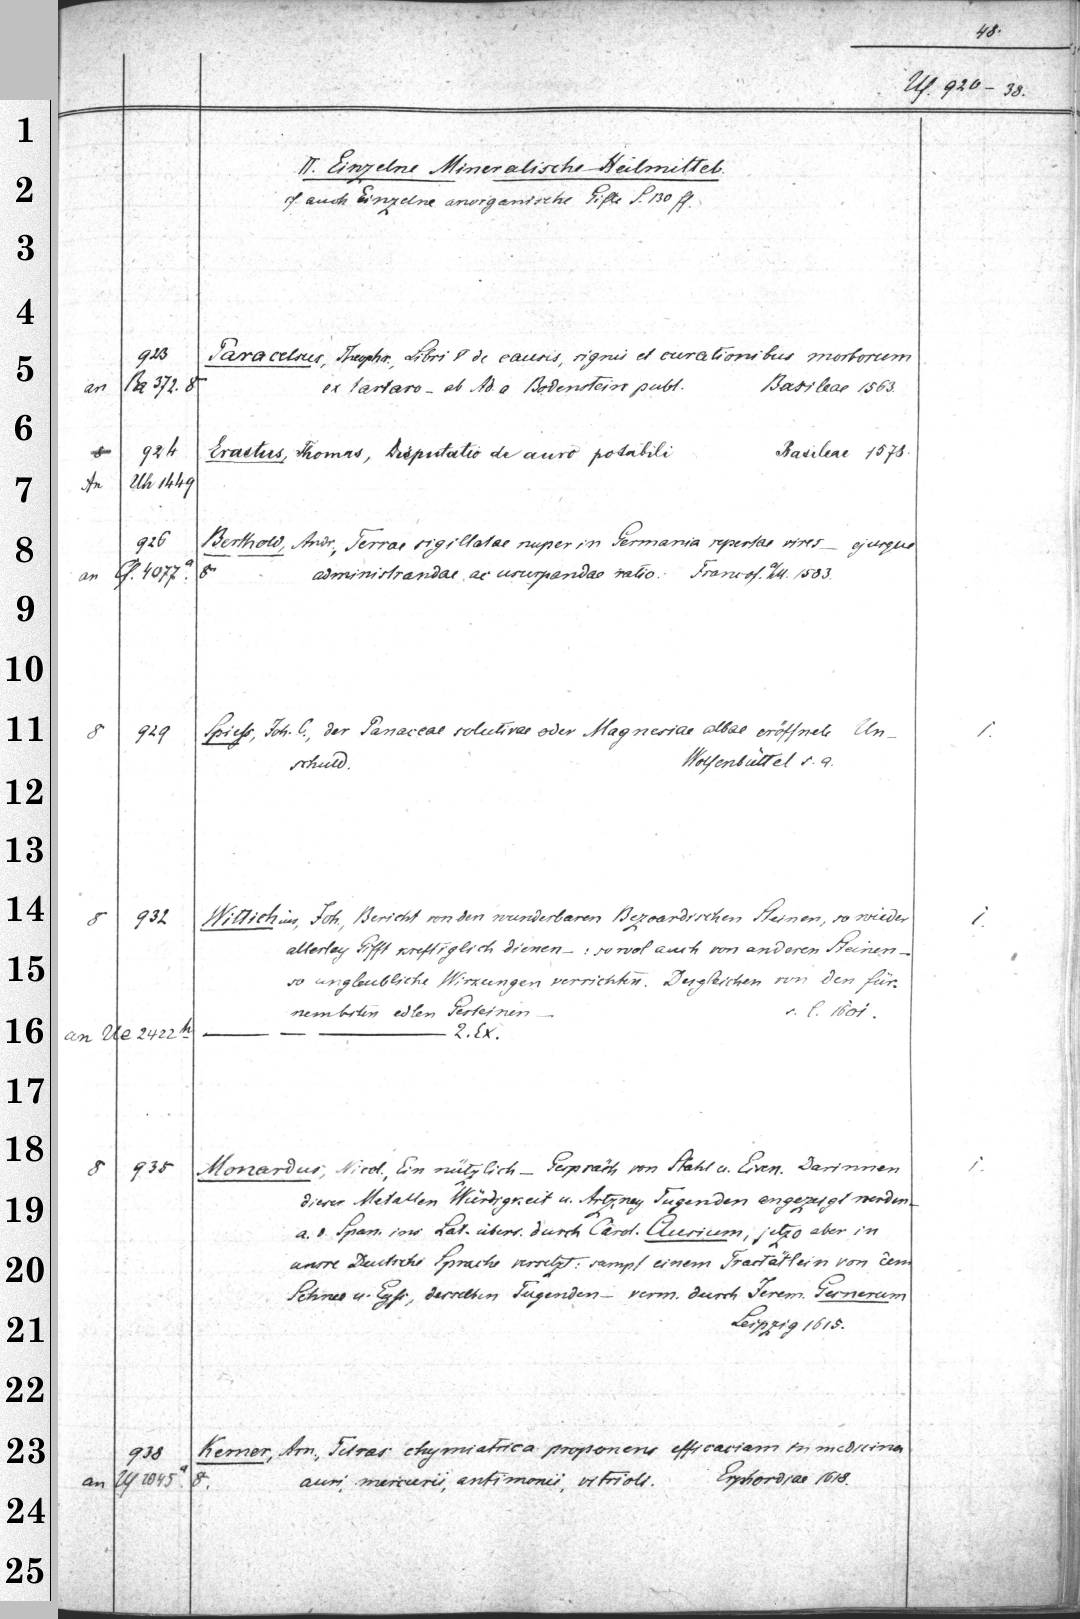 48.
Uf. 920 – 38.
1
II. Einzelne Mineralische Heilmittel.
2
cf auch Einzelne anorganische Gifte S. 130 ff.
3
4
923 Paracelsus, Theophr., Libri V de causis, signis et curationibus morborum
5
an 372. 8 ex tartaro – ab Ad. a Bodenstein publ. Basileae 1563.
6
8 924 Erastus, Thomas, Disputatio de auro potabili Basileae 1578.
7
An Uh 1449
8
926 Berthold, Andr., Terrae sigillatae nuper in Germania repertae vires – ejusque
an 4077a. 8 administrandae ac usurpandae ratio. Francof. a/M. 1583.
9
10
11
8 929 Spiess, Joh. C., der Panaceae solutivae oder Magnesiae albae eröffnete Un-
1.
schuld. Wolfenbüttel s. a.
12
13
14
8 932 Wittichius, Joh., Bericht von den wunderbaren Bezoardischen Steinen, so wieder
1.
allerley Gifft krefftiglich dienen – : sowol auch von anderen Steinen –
15
so unglaubliche Wirkungen verrichten. Desgleichen von den für-
nembsten edlen Gesteinen – s. l. 1601.
16
an Ue 2422h — — — 2. Ex.
17
18
8 935 Monardus, Nicol., Ein nützlich – Gespräch von Stahl u. Eisen. Darinnen
1.
dieser Metallen Würdigkeit u. Artzney Tugenden angezeigt werden –
19
a. d. Span. ins Lat. übers. durch Carol. Clusium, jetzo aber in
unsre Deutsche Sprache versetzt: sampt einem Tractätlein von dem
20
Schnee u. Eyss, desselben Tugenden – verm. durch Jerem. Gesnerum
21
Leipzig 1615.
22
23
938 Kerner, Arn., Tetras chymiatrica proponens efficaciam in medicina
an Uf 2045a 8. auri, mercurii, antimonii, vitrioli. Erphordiae 1618.
24
25